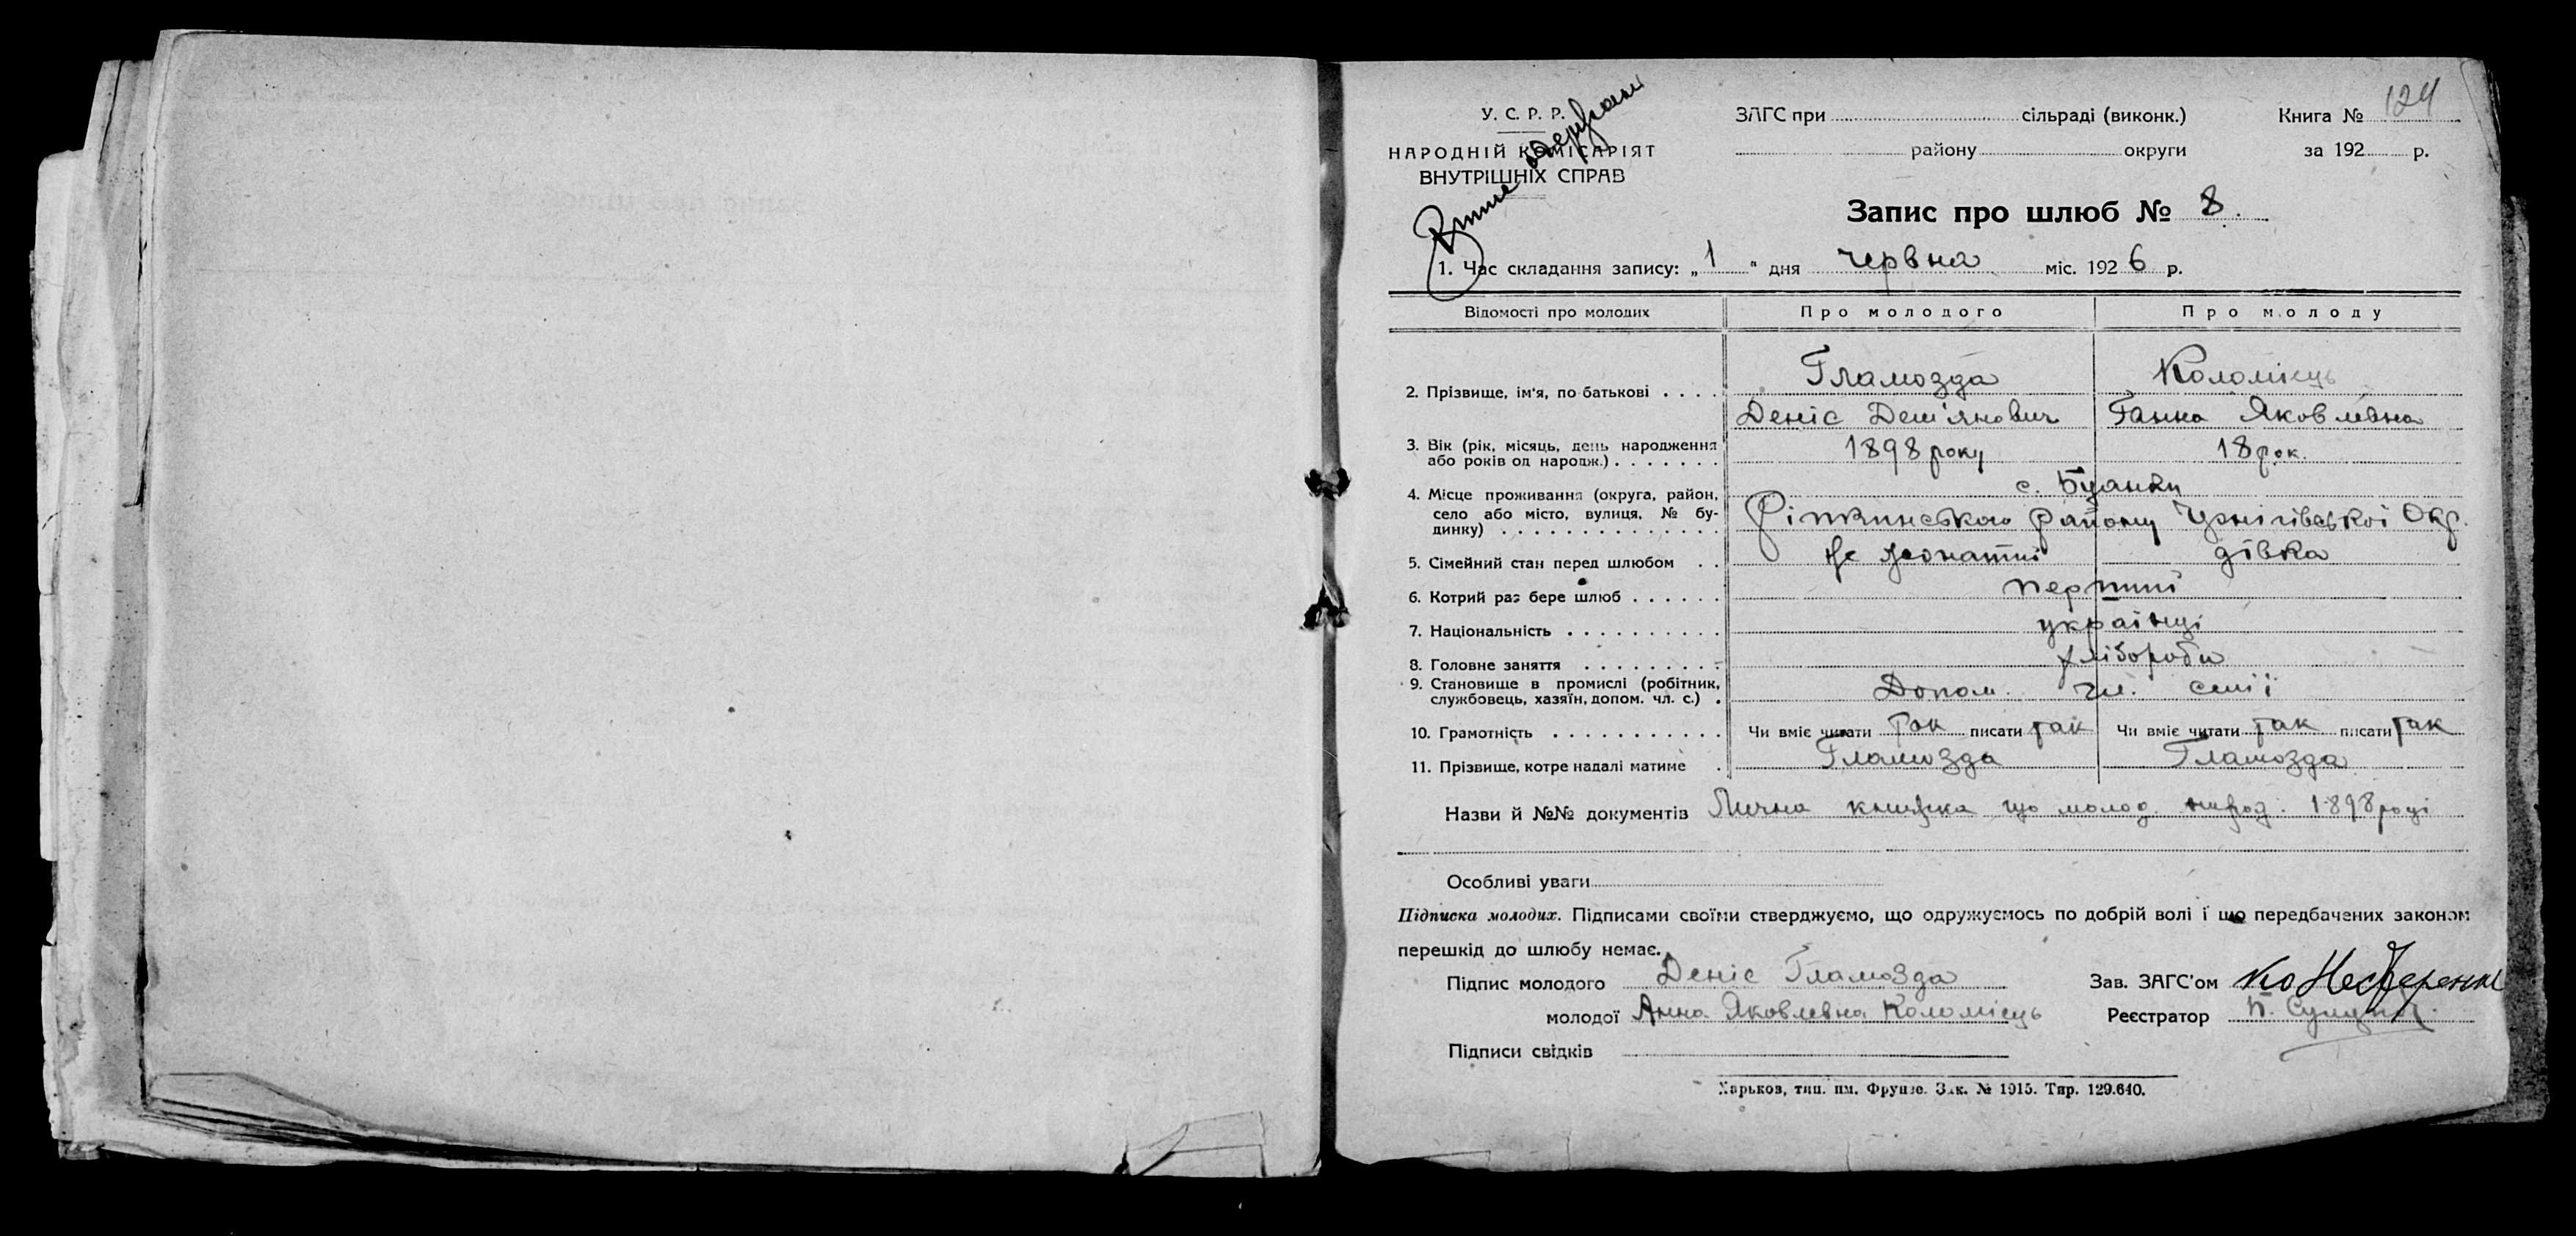 124
У. С. Р. Р.
НАРОДНІЙ КОМІСАРІЯТ
ВНУТРІШНІХ СПРАВ
ЗАГС при сільраді (виконк.)
району округи
Книга №
за 192 р.
Запис про шлюб № 8.
1. Час складання запису: „1" дня червня міс. 1926 р.
Відомості про молодих Про молодого Про молоду
2. Прізвище, ім'я, по батькові . . . . Гламозда Деніс Дем'янович Коломієць Ганна Яковлевна
3. Вік (рік, місяць, день народження
або років од народж.) . . . . . . . 1898 року 18 рок.
4. Місце проживання (округа, район,
село або місто, вулиця, № бу-
динку) . . . . . . . . . . . . . . с.
Ріпкинського району Чернігівської Окр.
5. Сімейний стан перед шлюбом . . Не жонатий дівка
6. Котрий раз бере шлюб . . . . . . перший
7. Національність . . . . . . . . . . українці
8. Головне заняття . . . . . . . . . хлібороби
9. Становище в промислі (робітник,
службовець, хазяїн, допом. чл. с.) . Допом. чл. семії
10. Грамотність . . . . . . . . . . . Чи вміє читати так писати так Чи вміє читати так писати так
11. Прізвище, котре надалі матиме . Гламозда Гламозда
Назви й №№ документів Лична книжка що молод. народ. 1898 році
Особливі уваги
Підписка молодих. Підписами своїми стверджуємо, що одружуємось по добрій волі і що передбачених законом
перешкід до шлюбу немає.
Підпис молодого Деніс Гламозда
Зав. ЗАГС'ом
молодої Анна Яковлевна Коломієць
Реєстратор
Підписи свідків
Харьков, тип. им. Фрунзе. Зак. № 1915. Тир. 129.640.